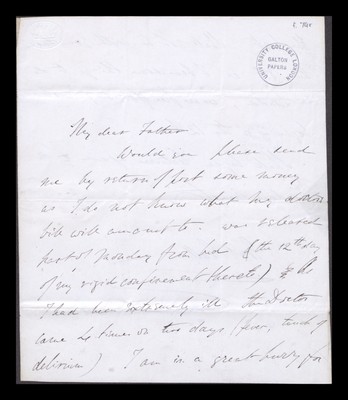 UNIVERSITY COLLEGE LONDON
GALTON
PAPERS
My dear Father
Would you please send
me by return of post some money
as I do not know what my doctors
bill will amount to. was released
last Monday from bed (the 12th day
of my rigid confinement thereto)
I had been extremely ill the Doctor
came times on two days (fever, touch of
delirium). I am in a great hurry for